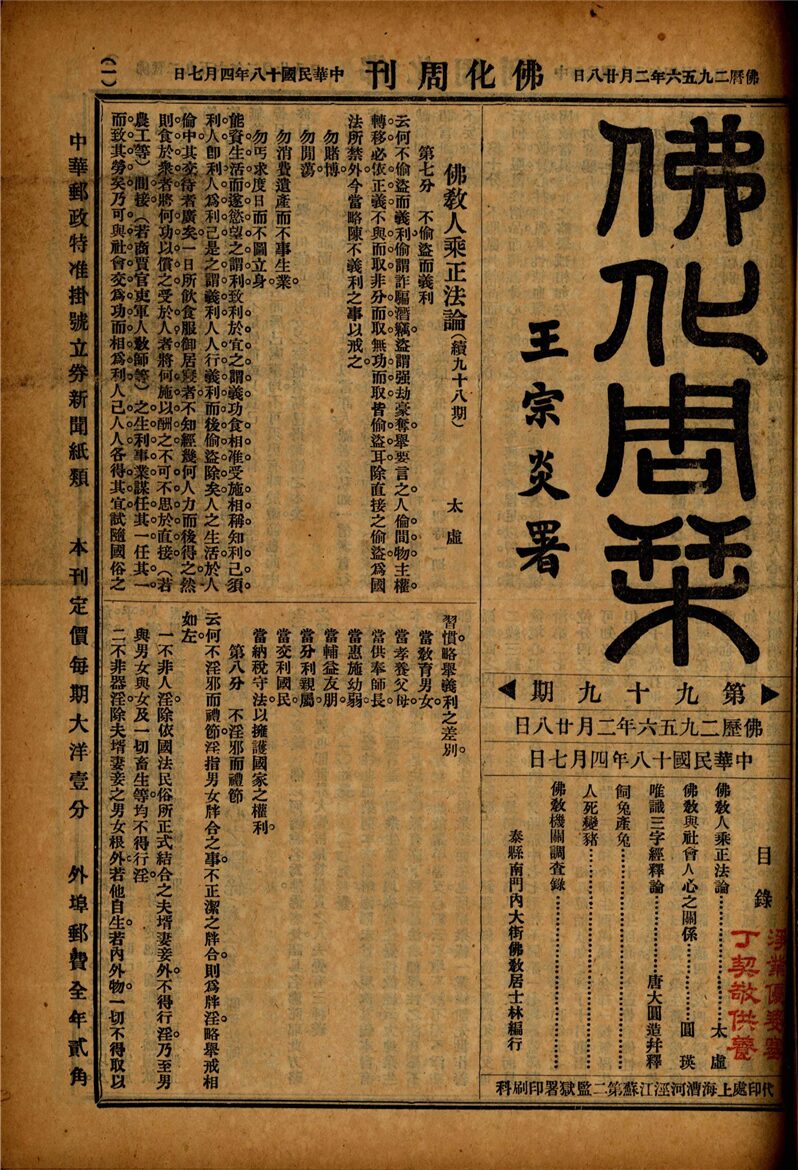 佛曆二九五六年二月廿八日
佛化周刊
中華民國十八年四月七日
(一)
佛化周栞
王宗炎署
第九十九期
佛歷二九五六年二月廿八日
中華民國十八年四月七日
目錄
佛教人乘正法論……太虛
佛教與社會人心之關係……圓瑛
唯識三字經釋論……唐大圓造幷釋
飼兔產兔……
人死變豬……
佛教機關調查錄……
泰縣南門內大街佛教居士林編行
代印處上海漕河涇江蘇第二監獄署印刷科
丁契敬供養
佛教人乘正法論(續九十八期) 太虛
第七分 不偷盜而義利
云何不偷盜而義利偷謂詐騙潛竊盜謂强劫豪奪舉要言之人倫間物主權
轉移必依正義不與而取非分而取無功而取皆偷盜耳除直接之偷盜爲國
法所禁外今當略陳不義利之事以戒之
勿賭博。
勿閒蕩。
勿消費遺產而不事生業。
勿丐求度日而不圖立身。
能資生活而遂慾望之謂利致利於宜之謂義功食相准受施相稱知利己須
利人卽利人爲利己是之謂義利人人行義利而後偷盜除矣人之生活於人
倫中其交待者廣矣一日所飲食服御居寢者不知經幾何人力而後得之然
則食於衆者將何功以償之受於人者將何施以酬之不可不思於直接(若
農工等)間接(若商賈官吏軍人敎師等)之生利事業謀任其一任其一
而致其勞矣乃可與社會交爲功而相爲利人己人人各得其宜試隨國俗之
習慣略舉義利之差別。
當敎育男女
當孝養父母
當供奉師長
當惠施幼弱
當輔益友朋
當分利親屬
當交利國民
當納稅守法以擁護國家之權利。
第八分 不淫邪而禮節
云何不淫邪而禮節淫指男女牉合之事不正潔之牉合則爲牉淫略舉戒相
如左。
一不非人淫除依國法民俗所正式結合之夫壻妻妾外不得行淫乃至男
與男女與女及一切畜生等均不得行淫
二不非器淫除夫壻妻妾之男女根外若他自生若內外物一切不得取以
中華郵政特准掛號立券新聞紙類 本刊定價每期大洋壹分 外埠郵費全年貳角